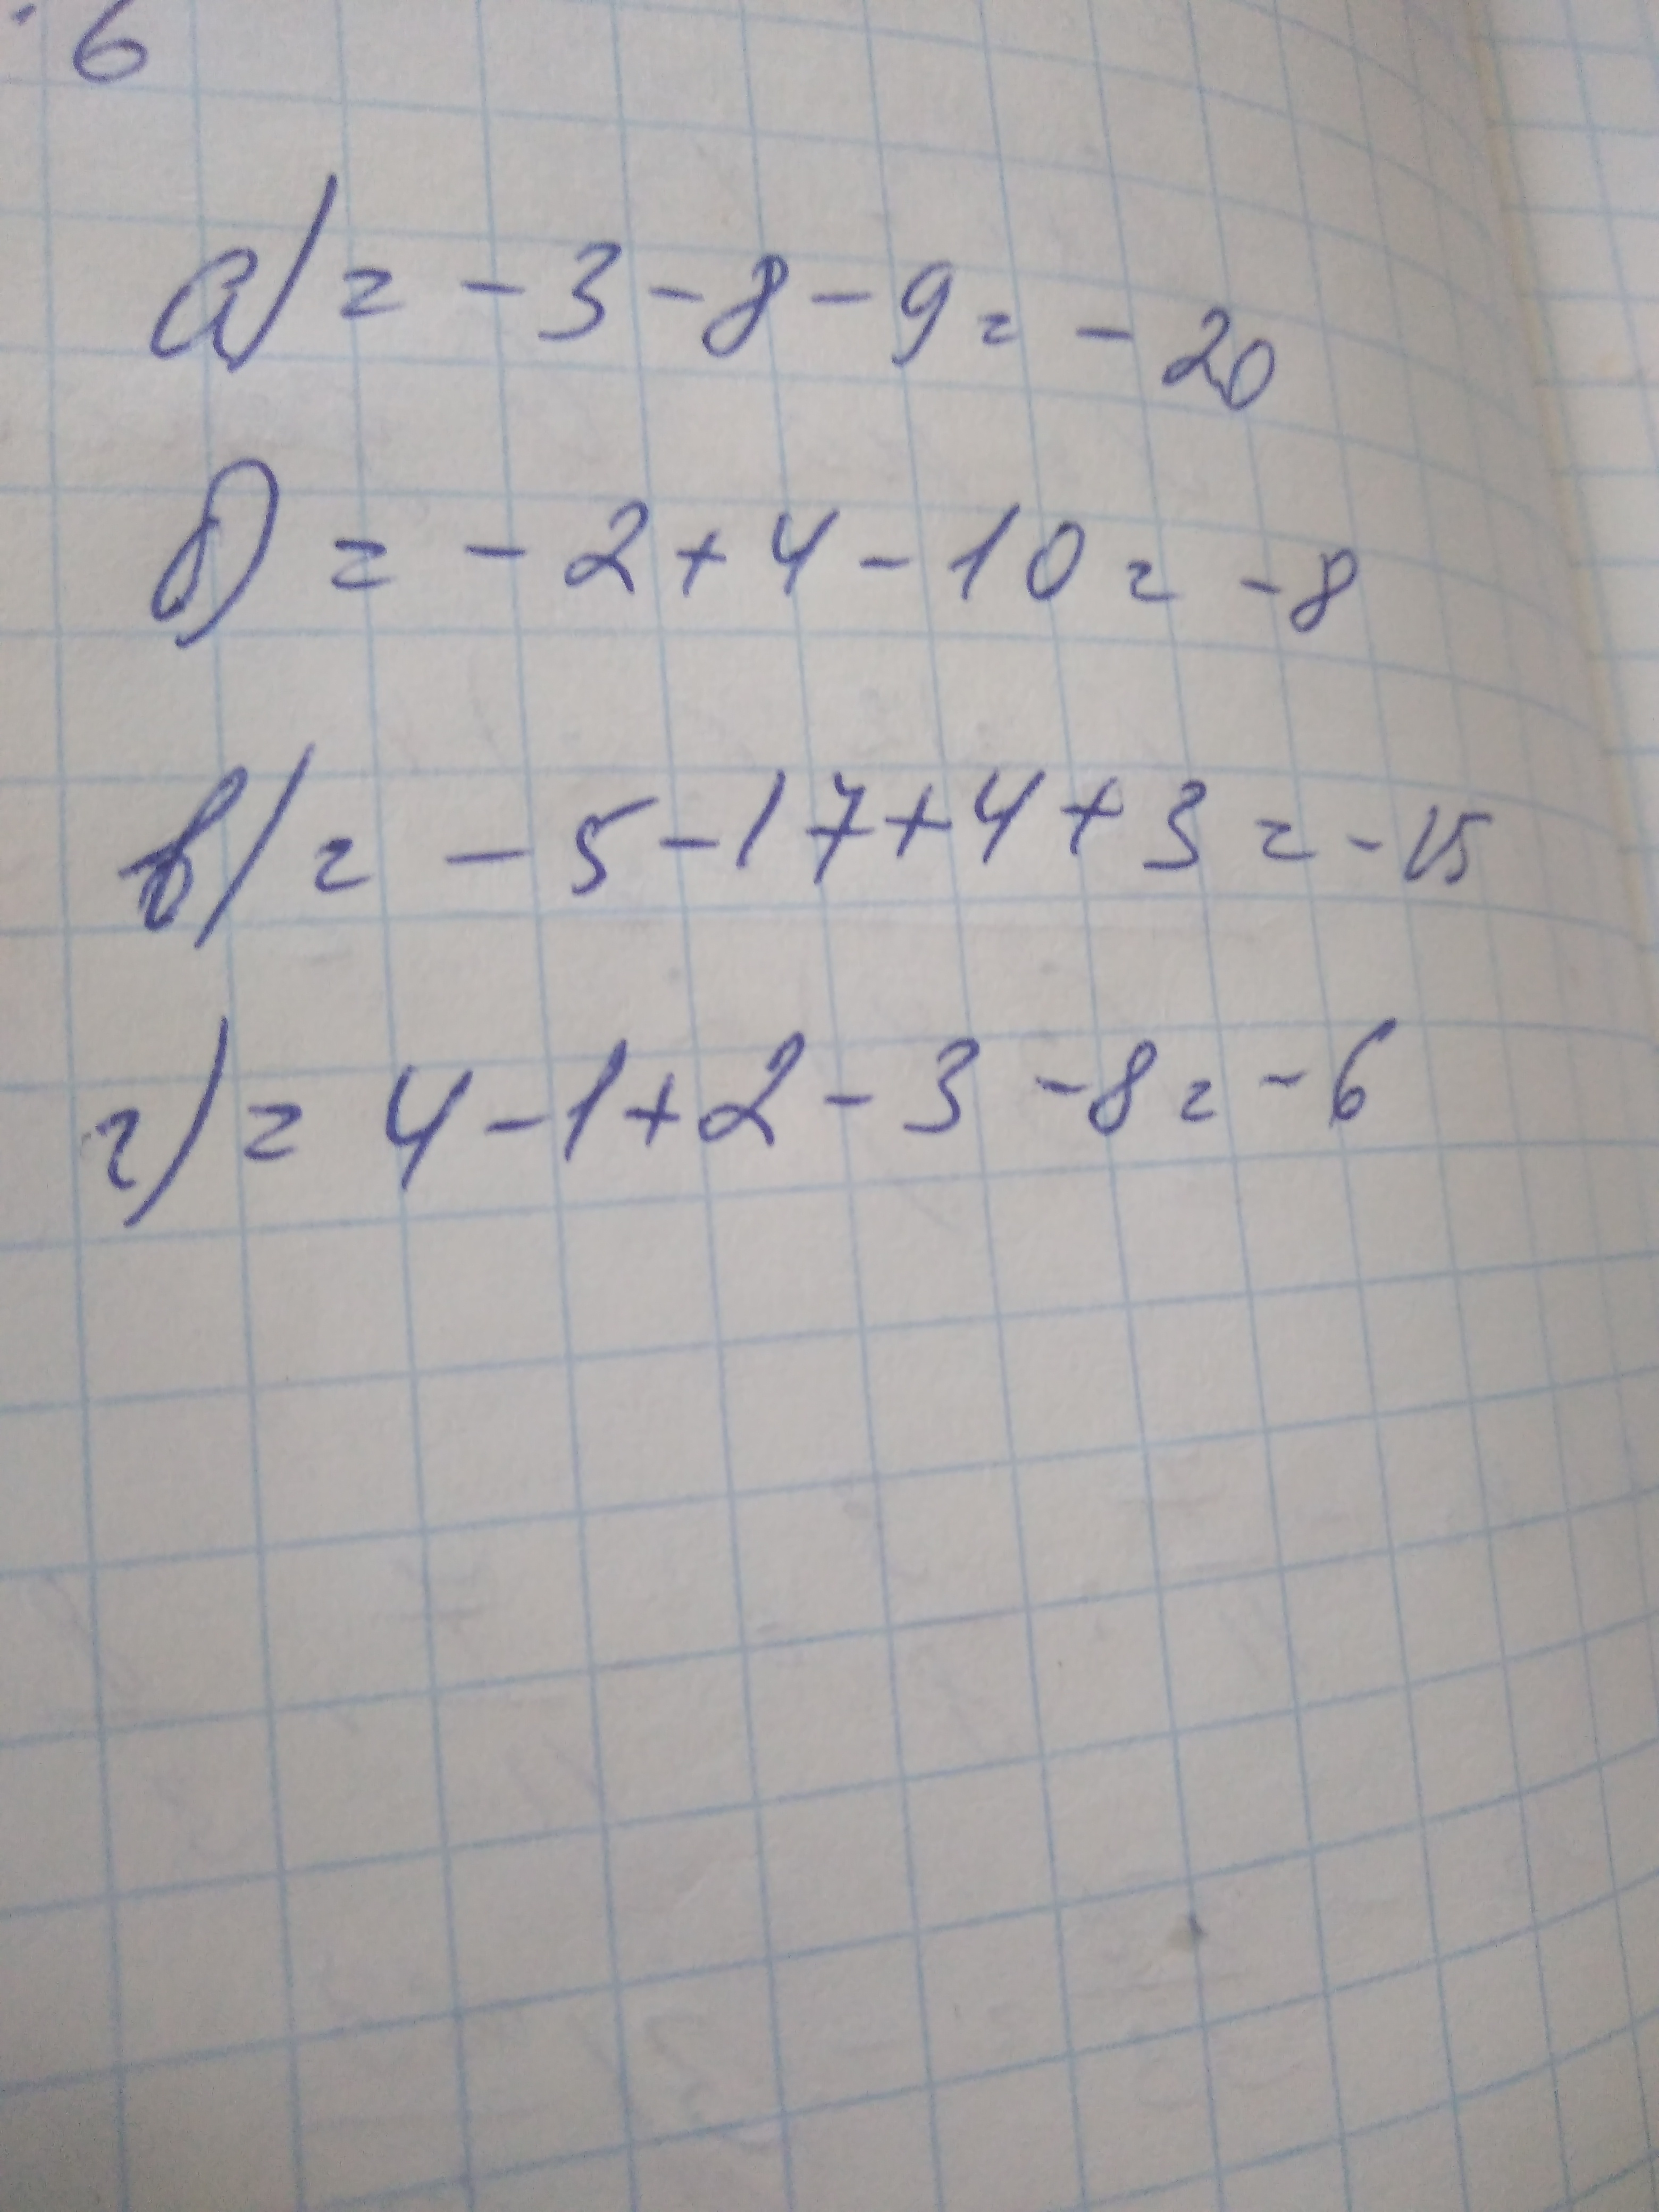 6
а) = - 3 - 8 - 9 = - 20
б) = - 2 + 4 - 10 = - 8
в) = - 5 - 17 + 4 + 3 = - 15
г) = 4 - 1 + 2 - 3 - 8 = - 6